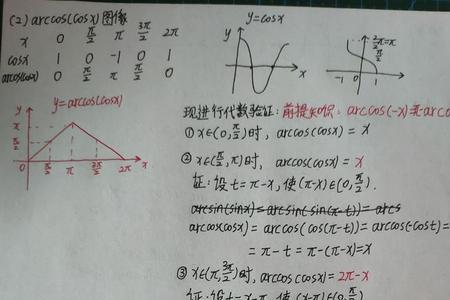 (2) arccos(cosx)图像
x 0 π/2 π 3π/2 2π
cosx 1 0 -1 0 1
arccos(cosx) 0 π/2 π π/2 0
y=arccos(cosx)
y
π
π/2
0 π/2 π 3π/2 2π x
y=cosx
y
x
π
-1 1
现进行代数验证: 前提知识: arccos(-x)
① x∈(0,π/2)时, arccos(cosx) = x
② x∈(π/2,π)时, arccos(cosx) = x
证: 设t=π-x, 使(π-x)∈(0,π/2).
arcsin(sinx)=arcsin(sin(π-t))=arcs
arccos(cosx) = arccos(cos(π-t)) = arccos(-cost) =
= π-t = π-(π-x)=x
③ x∈(π,3π/2)时, arccos(cosx) = 2π-x
证: 设t=x-π, 使(x-π)∈(0,π/2)